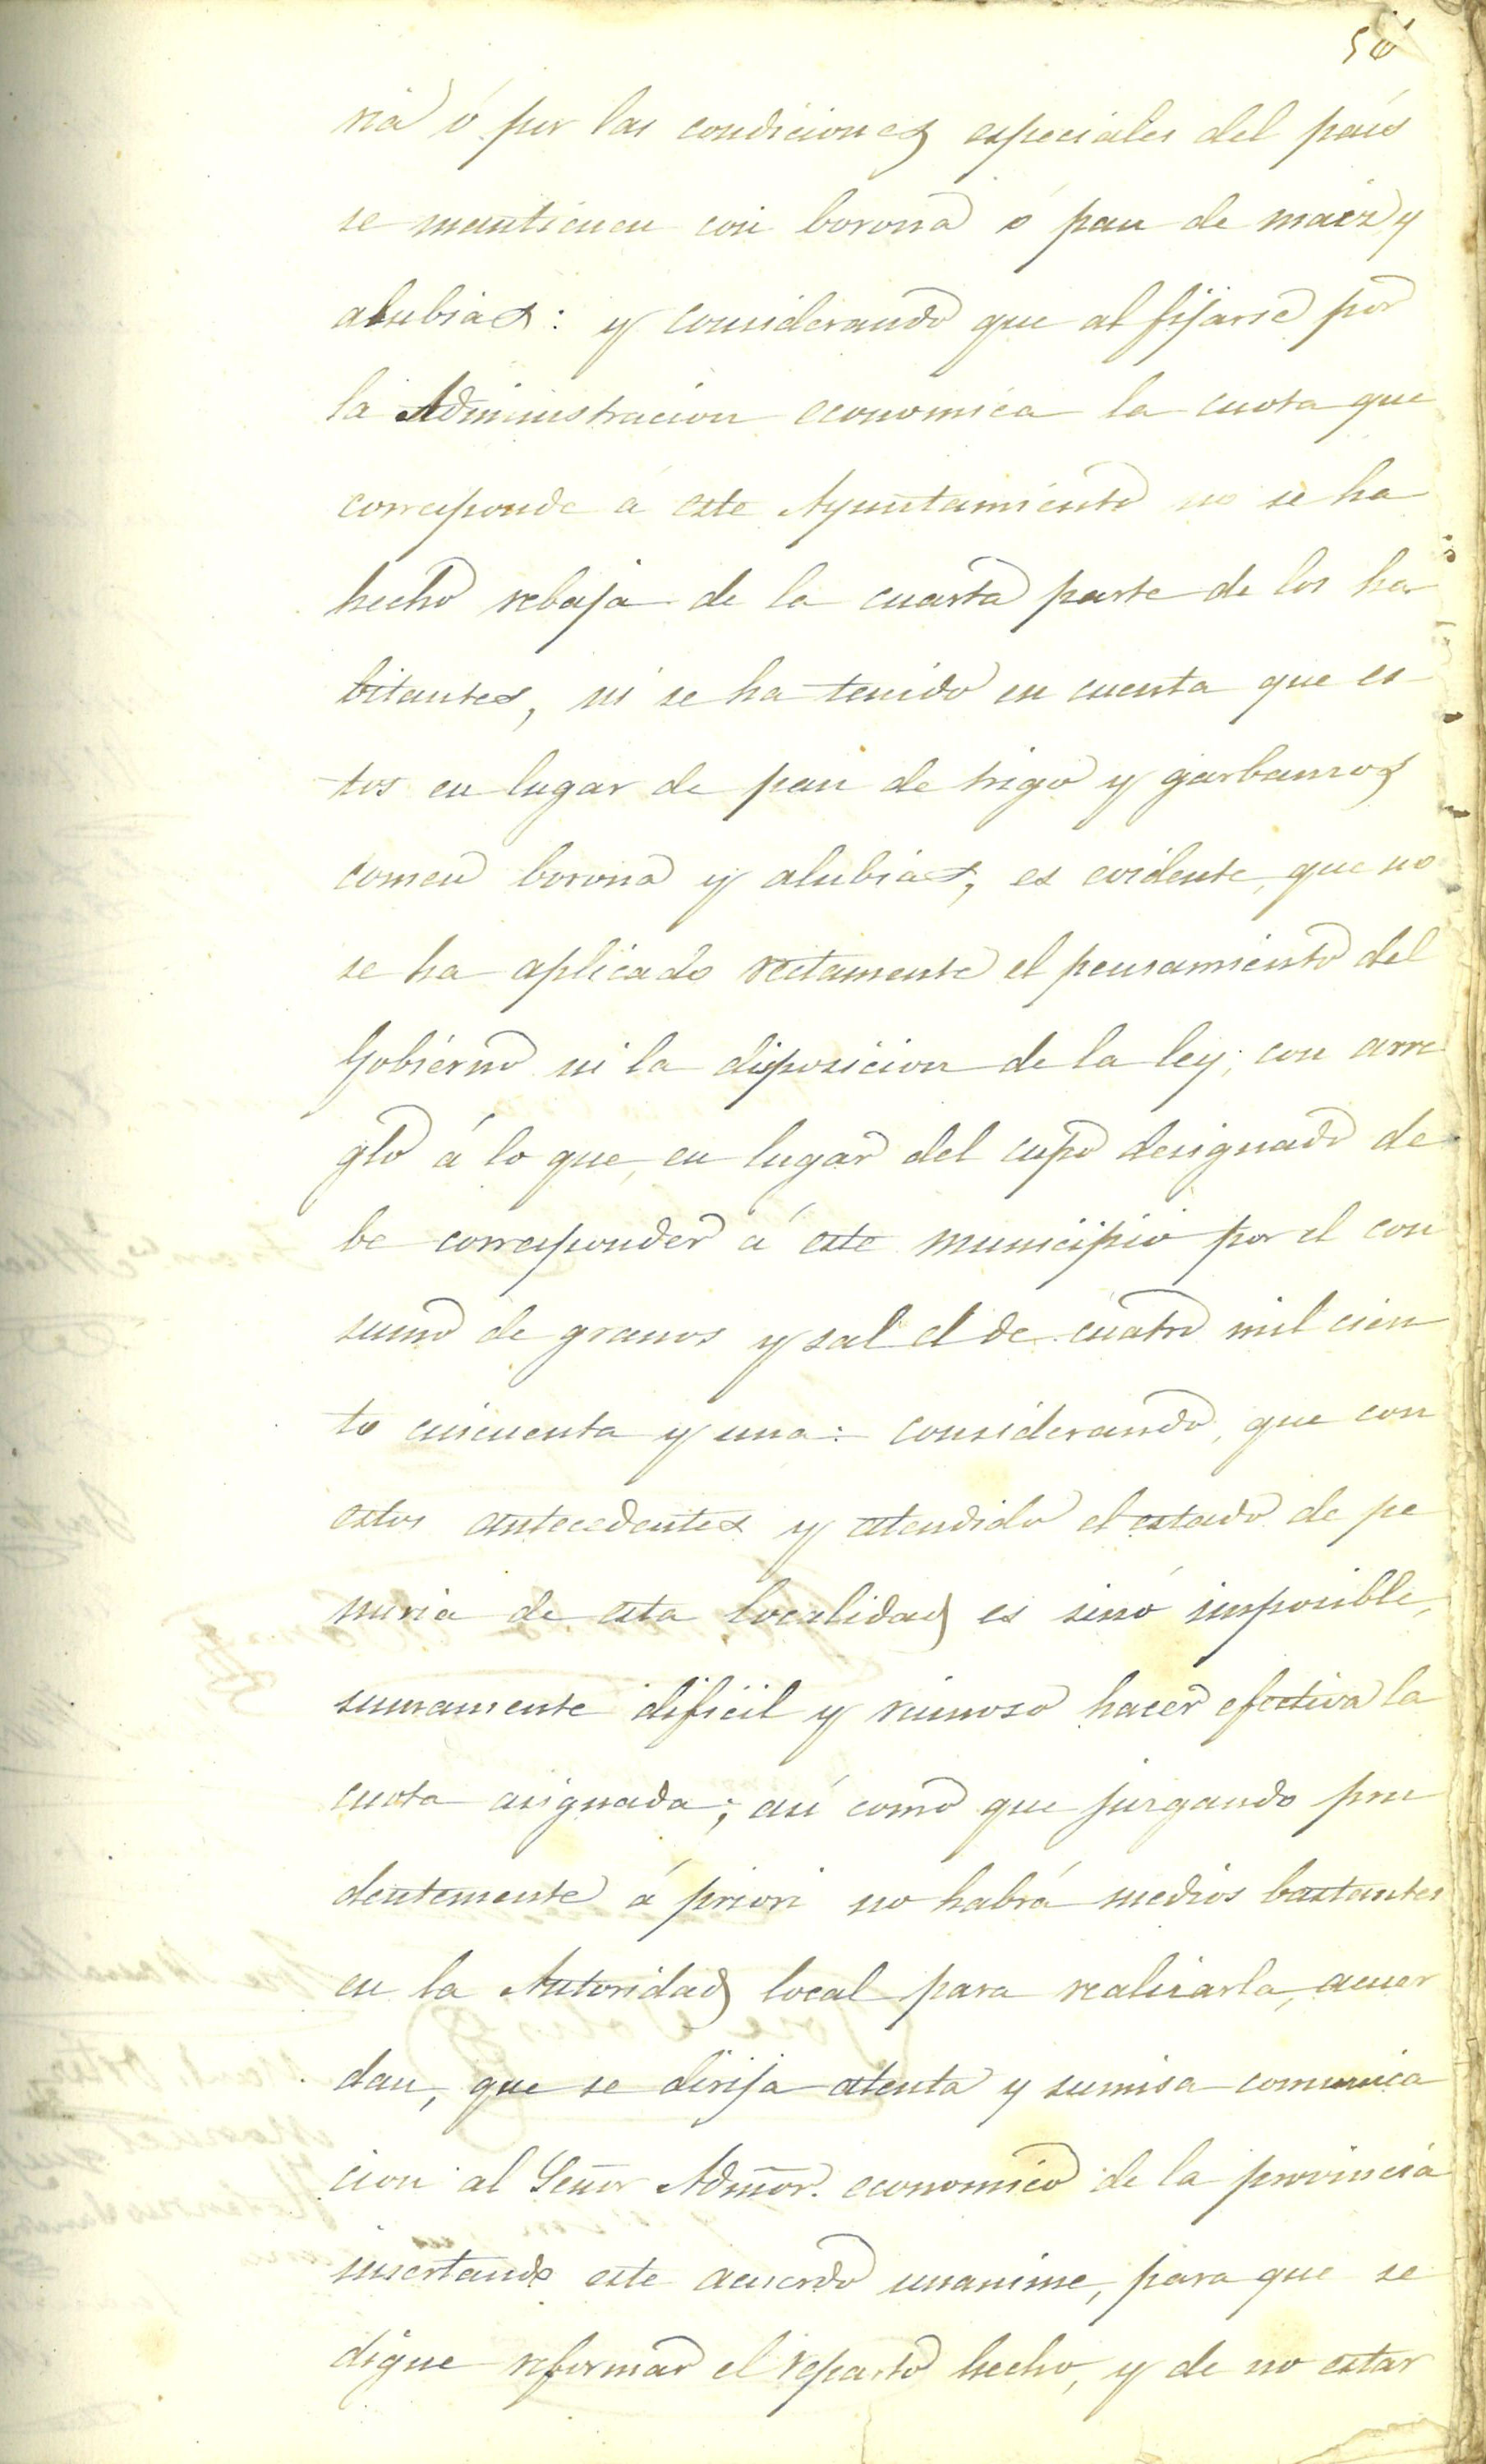 50
ria ó por las condiciones especiales del país
se mantienen con borona ó pan de maiz y
alubias: y considerando que al fijarse por
la Administracion economica la cuota que
corresponde á este Ayuntamiento no se ha
hecho rebaja de la cuarta parte de los ha
bitantes, ni se ha tenido en cuenta que es
tos en lugar de pan de trigo y garbanzos
comen borona y alubias, es evidente, que no
se ha aplicado rectamente el pensamiento del
Gobierno ni la disposicion de la ley; con arre
glo á lo que, en lugar del cupo designado de
be corresponder á este municipio por el con
sumo de granos y sal el de cuatro mil cien
to cincuenta y una: considerando, que con
estos antecedentes y atendido el estado de pe
nuria de esta localidad es sinó imposible,
sumamente dificil y ruinoso hacer efectiva la
cuota asignada; así como que juzgando pru
dentemente á priori no habrá medios bastantes
en la Autoridad local para realizarla, acuer
dan, que se dirija atenta y sumisa comunica
cion al Señor Admor. economico de la provincia
insertando este acuerdo unanime, para que se
digne reformar el reparto hecho, y de no estar